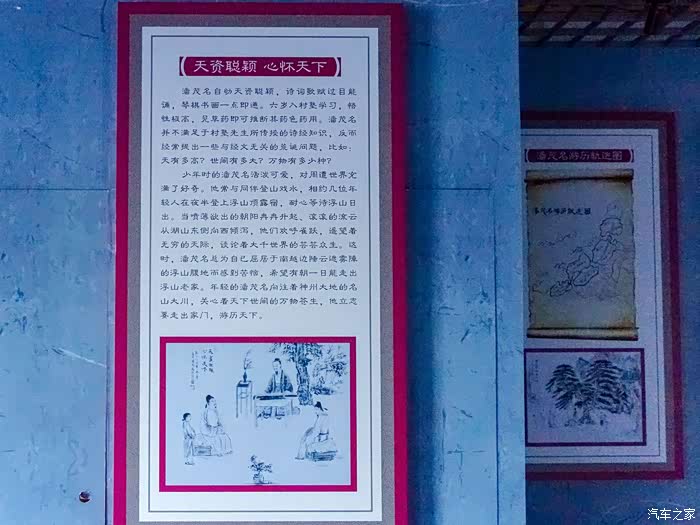 天资聪颖 心怀天下
潘茂名自幼天资聪颖，诗词歌赋过目能
诵，琴棋书画一点即通。六岁入村塾学习，悟
性极高，见草药即可推断其药色药用。潘茂名
并不满足于村塾先生所传授的诗经知识，反而
经常提出一些与经文无关的荒诞问题，比如：
天有多高？世间有多大？万物有多少种？
少年时的潘茂名活泼可爱，对周遭世界充
满了好奇。他常与同伴登山戏水，相约几位年
轻人在夜半登上浮山顶露宿，耐心等待浮山日
出。当喷薄欲出的朝阳冉冉升起、滚滚的流云
从湖山东侧向西倾泻，他们欢呼雀跃，遥望着
无穷的天际，谈论着大千世界的芸芸众生。这
时，潘茂名总为自己屈居于南越边陲云遮雾障
的浮山腹地而感到苦恼，希望有朝一日能走出
浮山老家。年轻的潘茂名向往着神州大地的名
山大川，关心着天下世间的万物苍生，他立志
要走出家门，游历天下。
天资聪颖
心怀天下
潘茂名游历轨迹图
潘茂名游历轨迹图
汽车之家